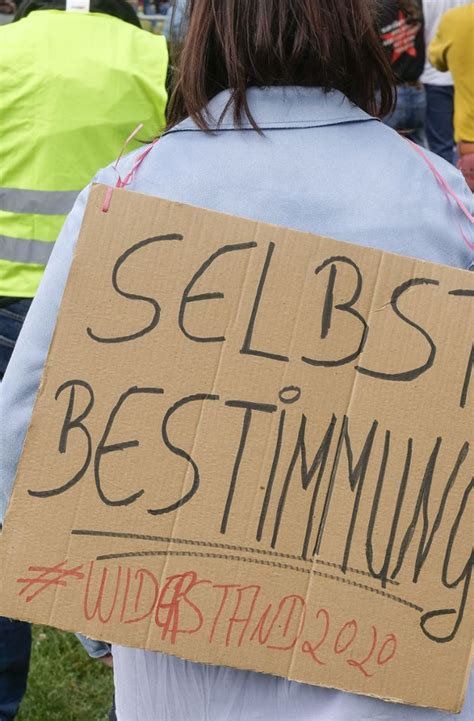 SELBST
BESTIMMUNG
#WIDERSTAND2020